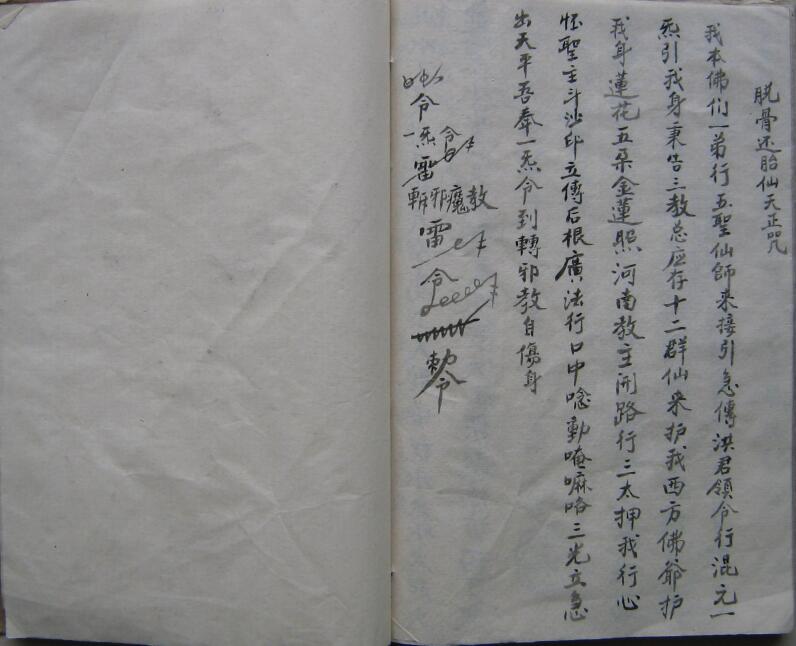 脱骨还胎仙天正咒
我本佛们一弟行五聖仙師来接引急傳洪君領令行混元一
炁引我身秉告三教总应存十二群仙来护我西方佛爺护
我身蓮花五朵金蓮照河南教主開路行三太押我行心
怪聖主斗沙印立傳后根廣法行口中唸動唵嘛咯三光立急
出天平吾奉一炁令到轉邪教自傷身
令
一炁雷令
斬邪魔教
雷
令
敕令